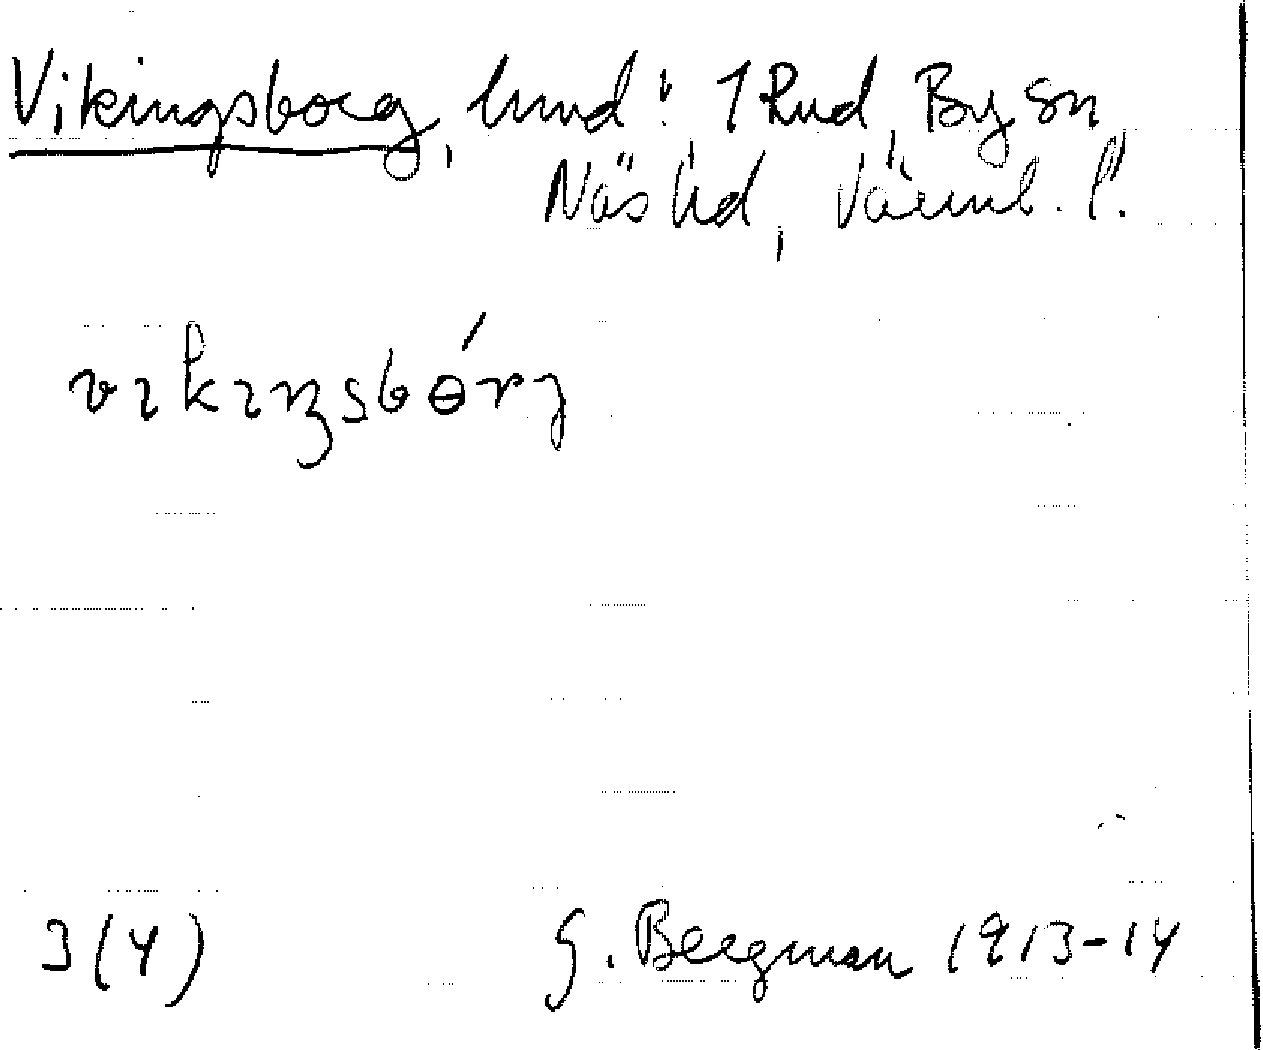 Vikingsborg, lund i 1 Rud, By sn
Näs hd, Värml. l.
vıkıŋsbɵ́rj
3(4) G. Bergman 1913-14